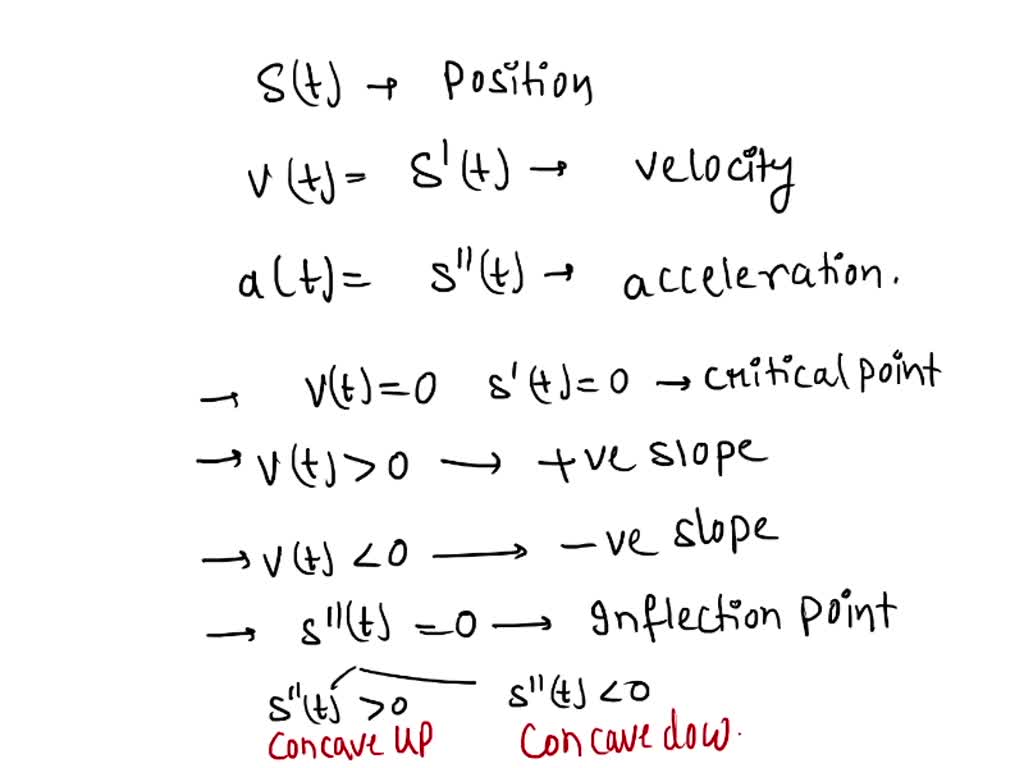 S(t) → Position
v(t) = S'(t) → velocity
a(t) = s''(t) → acceleration.
→ v(t)=0 s'(t)=0 → critical point
→ v(t) > 0 → +ve slope
→ v(t) < 0 → -ve slope
→ s''(t) = 0 → Inflection point
s''(t) > 0 s''(t) < 0
Concave up Concave dow.